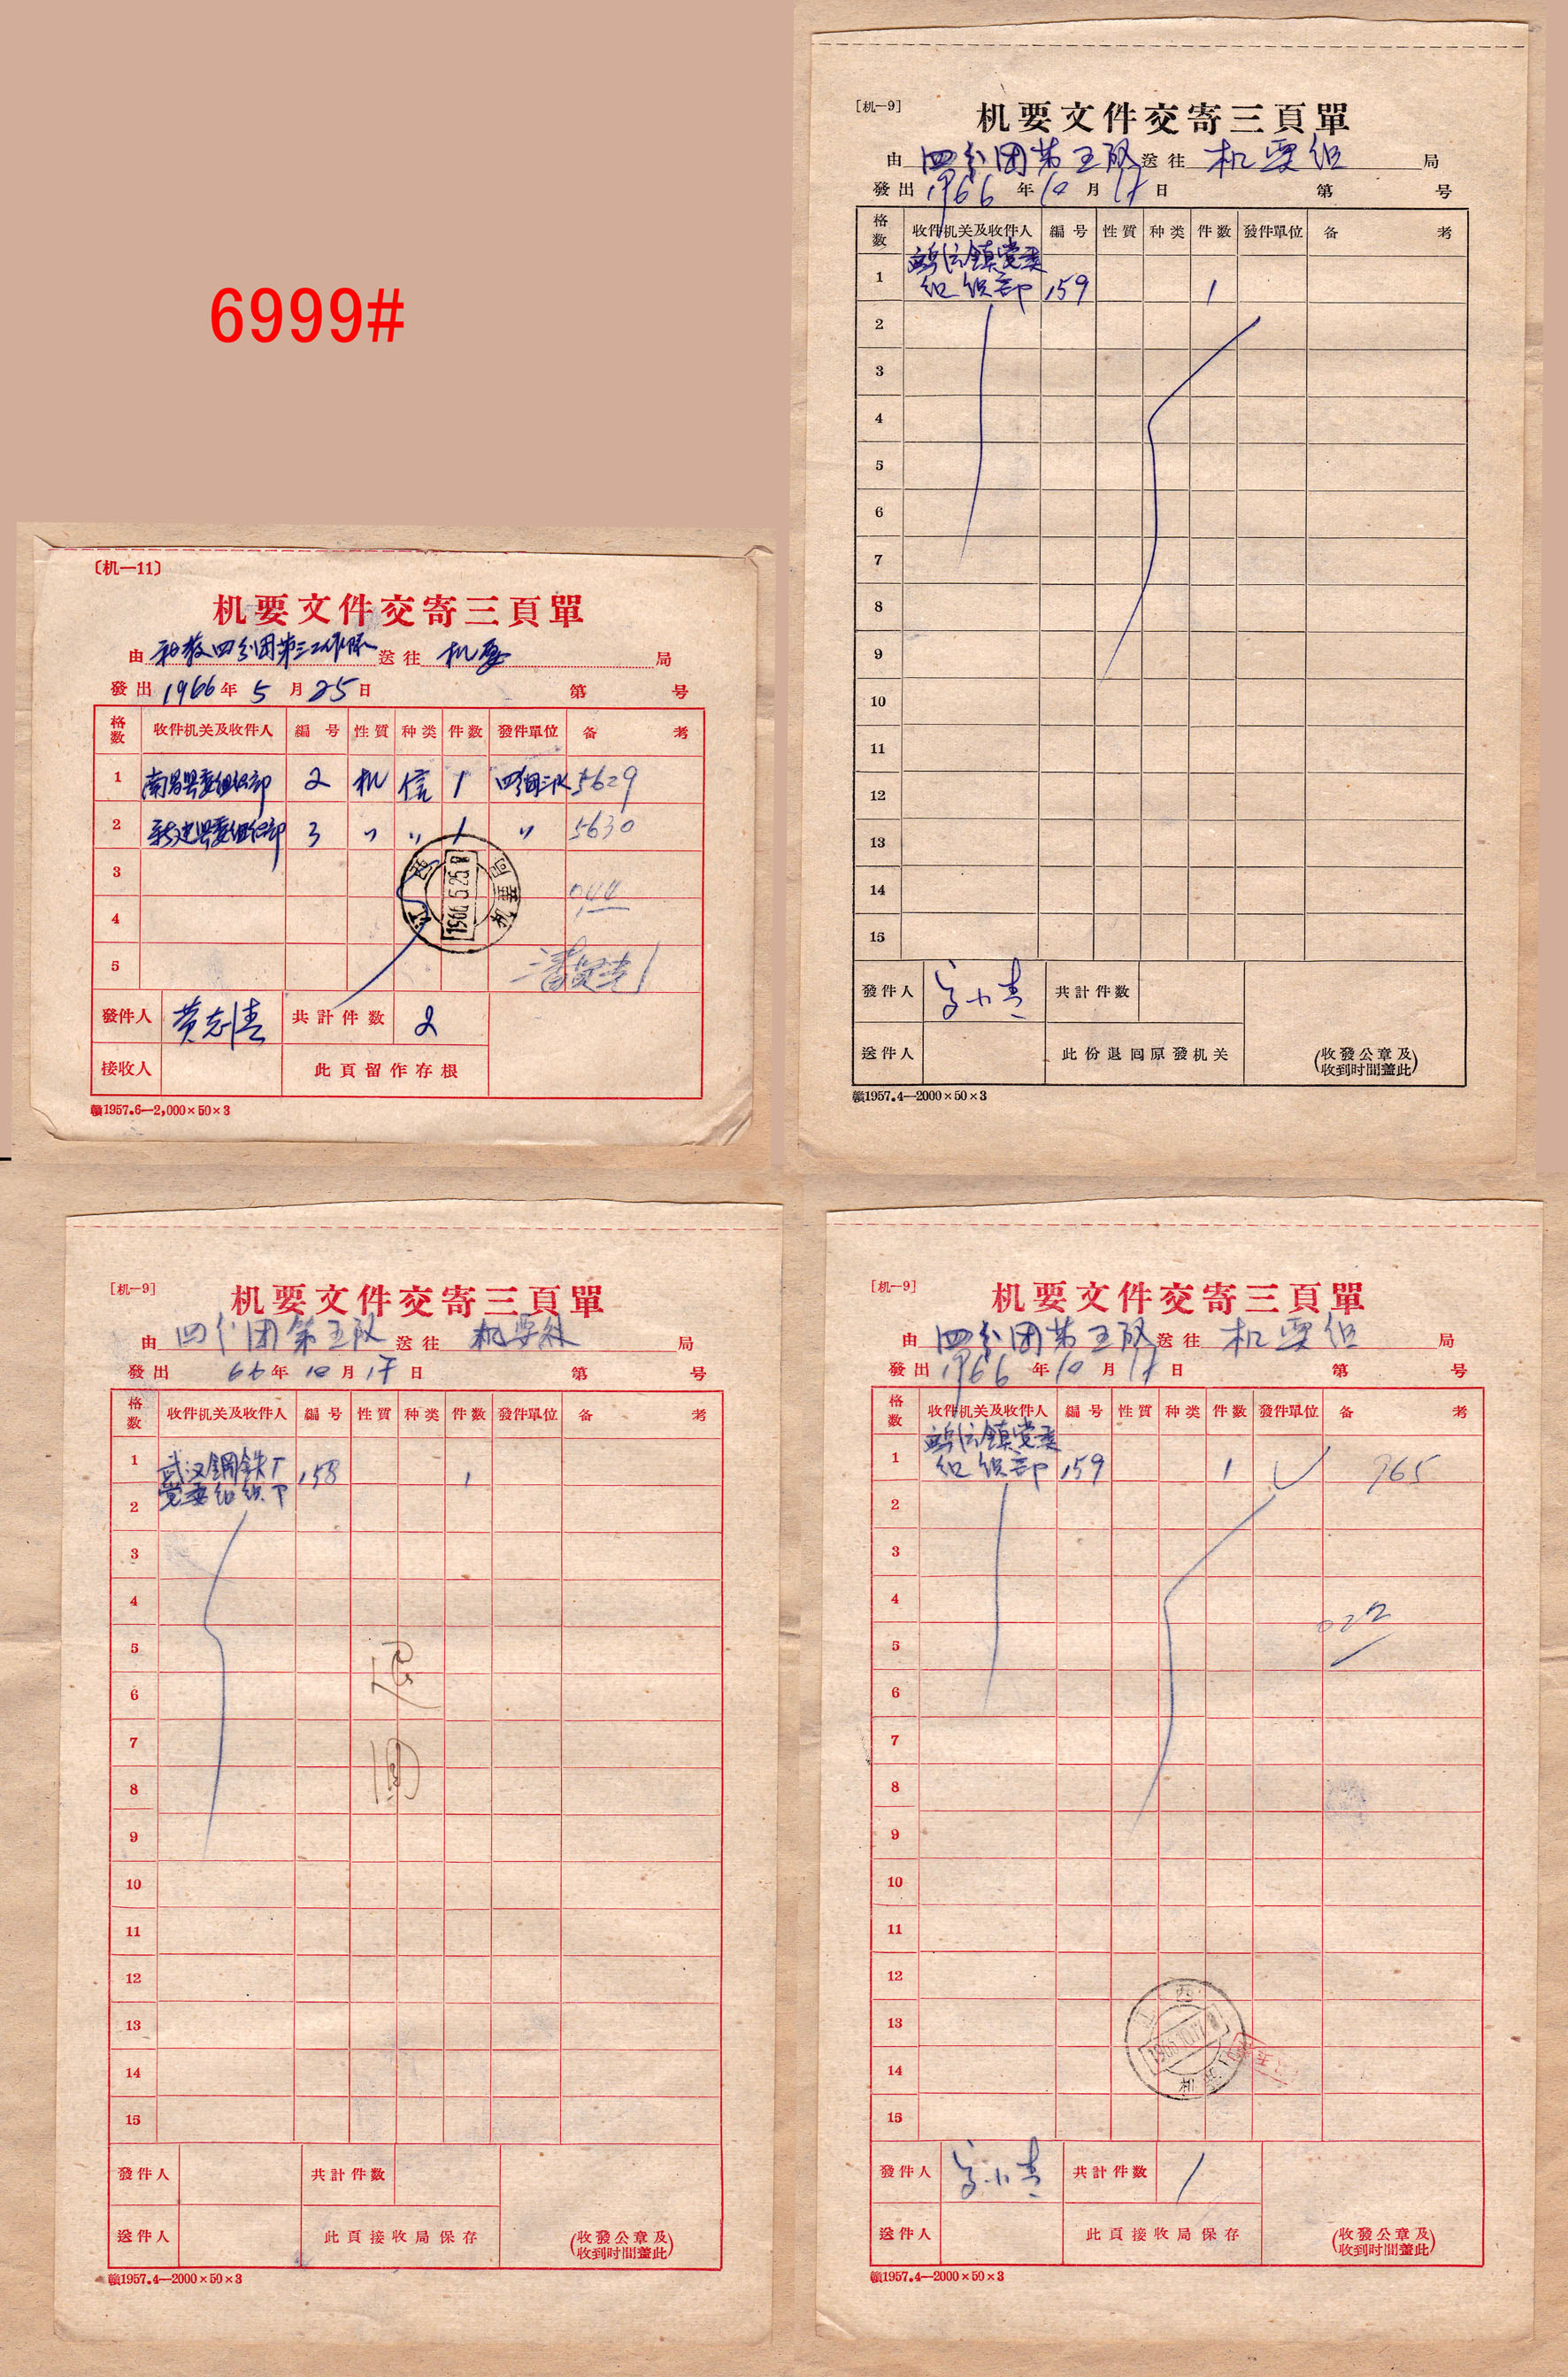 6999#
〔机—11〕
机要文件交寄三頁單
由 社教四分团第三工作队 送往 机要 局
發出 1966 年 5 月 25 日 第 号
格数 收件机关及收件人 編号 性質 种类 件数 發件單位 备考
1 南昌县委组织部 2 机 信 1 四分团三队 5629
2 新建县委组织部 3 〃 〃 1 〃 5630
3
4 044
5
發件人 黄志清 共計件数 2
接收人 此頁留作存根
江西
1966.5.25
贛1957.6—2,000×50×3
[机—9]
机要文件交寄三頁單
由 四分团第五队 送往 机要组 局
發出 1966 年 10 月 17 日 第 号
格数 收件机关及收件人 編号 性質 种类 件数 發件單位 备考
1 镇党委
组织部 159 1
2
3
4
5
6
7
8
9
10
11
12
13
14
15
發件人 共計件数
送件人 此份退回原發机关 (收發公章及
收到时間蓋此)
贛1957.4—2000×50×3
[机—9]
机要文件交寄三頁單
由 四分团第五队 送往 机要 局
發出 66 年 10 月 17 日 第 号
格数 收件机关及收件人 編号 性質 种类 件数 發件單位 备考
1 武汉钢铁厂 158 1
2 党委组织部
3
4
5 退
6
7
8 回
9
10
11
12
13
14
15
發件人 共計件数
送件人 此頁接收局保存 (收發公章及
收到时間蓋此)
贛1957.4—2000×50×3
[机—9]
机要文件交寄三頁單
由 四分团第五队 送往 机要组 局
發出 1966 年 10 月 17 日 第 号
格数 收件机关及收件人 編号 性質 种类 件数 發件單位 备考
1 镇党委
组织部 159 1 965
2
3
4 022
5
6
7
8
9
10
11
12
13
14
15
發件人 共計件数 1
送件人 此頁接收局保存 (收發公章及
收到时間蓋此)
贛1957.4—2000×50×3